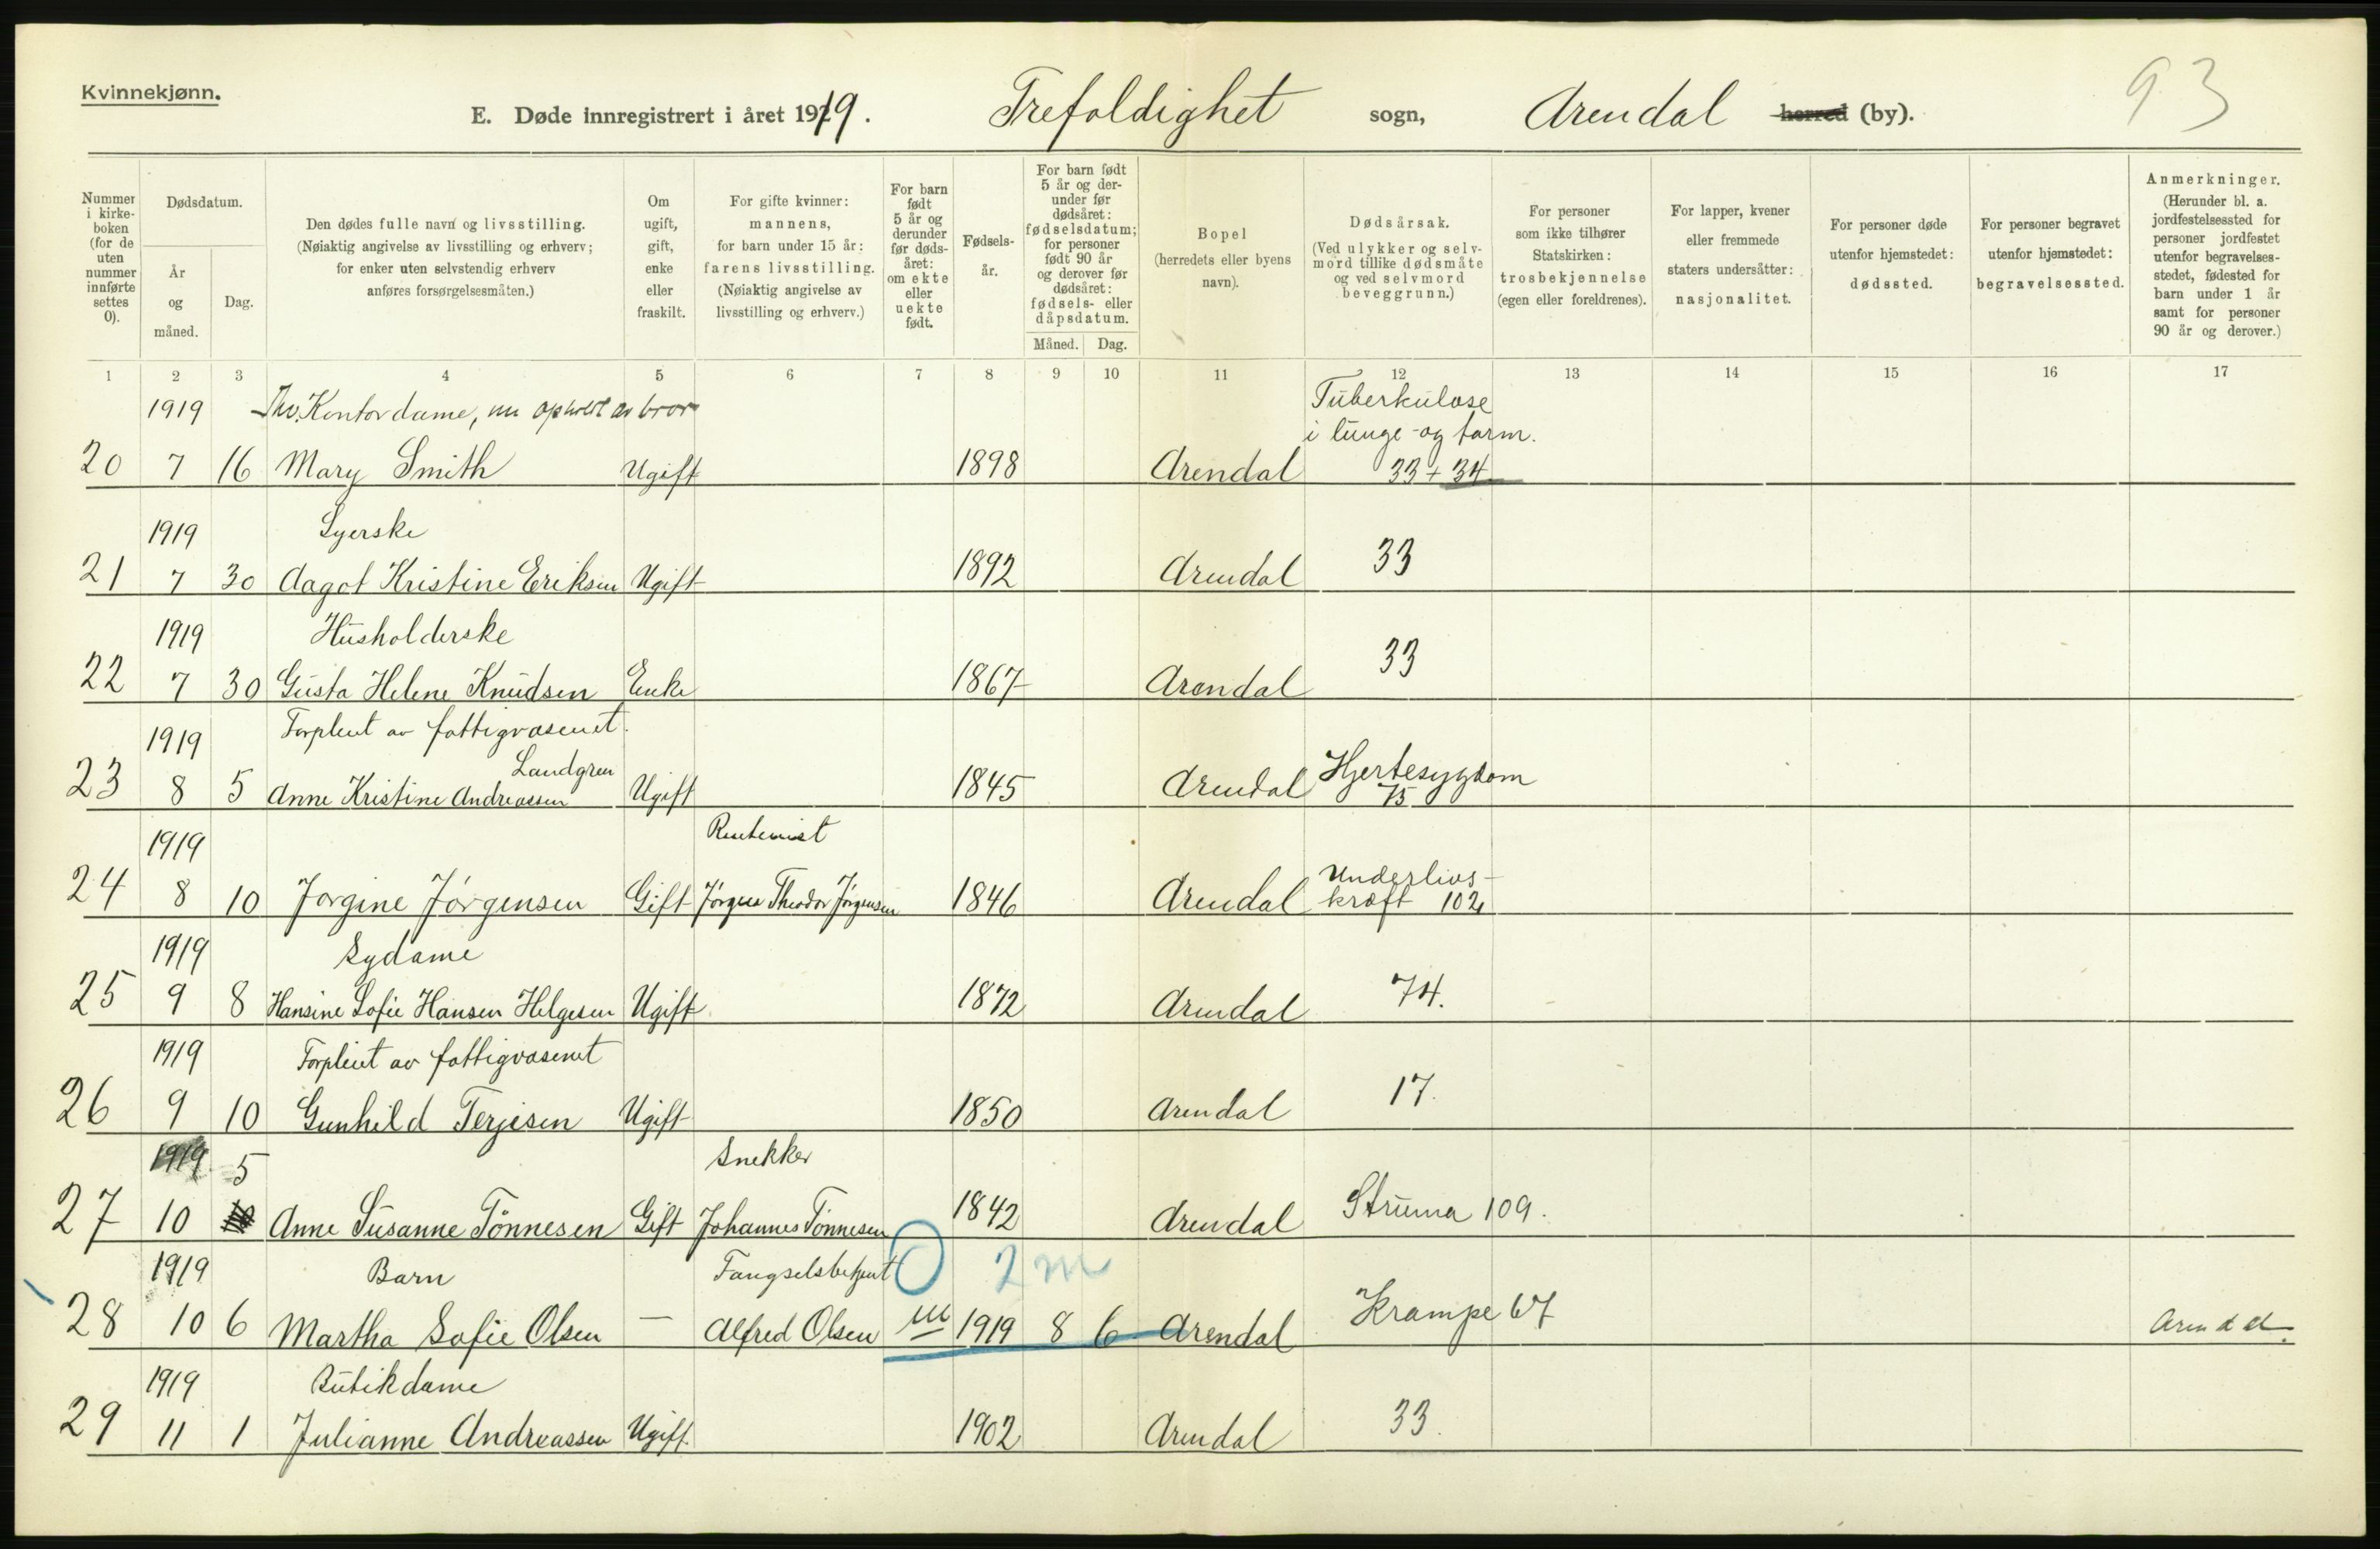 Kvinnekjønn.
E. Døde innregistrert i året 1919. Trefoldighet sogn, Arendal herred (by).
93
Nummer i kirke-boken (for de uten nummer innførte settes 0).
Dødsdatum.
År og måned.
Dag.
Den dødes fulle navn og livsstilling.
(Nøiaktig angivelse av livsstilling og erhverv;
for enker uten selvstendig erhverv
anføres forsørgelsesmåten.)
Om
ugift,
gift,
enke
eller
fraskilt.
For gifte kvinner:
mannens,
for barn under 15 år:
farens livsstilling.
(Nøiaktig angivelse av
livsstilling og erhverv.)
For barn
født
5 år og
derunder
før døds-
året:
om ekte
eller
uekte
født.
Fødsels-
år.
For barn født
5 år og der-
under før
dødsåret:
fødselsdatum;
for personer
født 90 år
og derover før
dødsåret:
fødsels- eller
dåpsdatum.
Måned. Dag.
Bopel
(herredets eller byens
navn).
Dødsårsak.
(Ved ulykker og selv-
mord tillike dødsmåte
og ved selvmord
beveggrunn.)
For personer
som ikke tilhører
Statskirken:
trosbekjennelse
(egen eller foreldrenes).
For lapper, kvener
eller fremmede
staters undersåtter:
nasjonalitet.
For personer døde
utenfor hjemstedet:
dødssted.
For personer begravet
utenfor hjemstedet:
begravelsessted.
Anmerkninger.
(Herunder bl. a.
jordfestelsessted for
personer jordfestet
utenfor begravelses-
stedet, fødested for
barn under 1 år
samt for personer
90 år og derover.)
1 2 3 4 5 6 7 8 9 10 11 12 13 14 15 16 17
1919 Kontordame, nu opholdt av bror Tuberkulose
i lunge-og tarm.
20 7 16 Mary Smith Ugift 1898 Arendal 33 + 34
1919 Syerske
21 7 30 Aagot Kristine Eriksen Ugift 1892 Arendal 33
1919 Husholderske
22 7 30 Gusta Helene Knudsen Enke 1867 Arendal 33
1919 Forpleiet av fattigvæsenet.
Landgren
23 8 5 Anne Kristine Andreassen Ugift 1845 Arendal Hjertesygdom
75
1919 Rentenist
24 8 10 Jørgine Jørgensen Gift Jørgen Theodor Jørgensen 1846 Arendal Underlivs-
kræft 102
1919 Sydame
25 9 8 Hansine Sofie Hansen Helgesen Ugift 1872 Arendal 74.
1919 Forpleiet av fattigvæsenet
26 9 10 Gunhild Terjesen Ugift 1850 Arendal 17.
1919 5 Snekker
27 10 Anne Susanne Tønnesen Gift Johannes Tønnesen 1842 Arendal Struma 109.
1919 Barn Fængselsbetjent 0 2 m
28 10 6 Martha Sofie Olsen — Alfred Olsen 1919 8 6 Arendal Krampe 67 Arendal.
1919 Butikdame
29 11 1 Julianne Andreassen Ugift 1902 Arendal 33